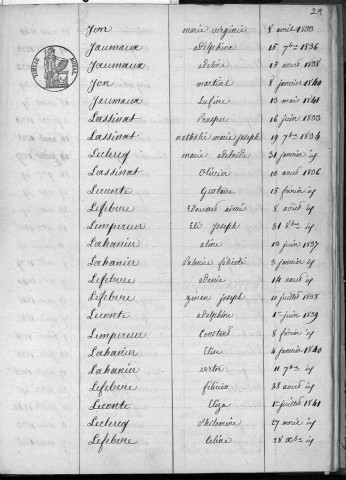 29
TIMBRE ROYAL
Jon marie virginie 8 avril 1833
Jaumaux adelphine 15 7bre 1836
Jaumaux adeline 15 août 1838
Jon martial 8 janvier 1840
Jaumaux 13 mai 1841
Lassinat Prosper 16 juin 1833
Lassinat nathalie marie joseph 19 7bre 1834
Leclercq marie adelaïde 31 janvier id
Lassinat Olivier 10 août 1836
Leconte Gustave 15 février id
Lefebvre Edouard aimé 8 août id
Lempereur Eli joseph 31 8bre id
Lahanier aline 13 juin 1837
Lahanier Palmire félicité 3 janvier id
Lefebvre 14 août id
Lefebvre joseph 10 juillet 1838
Leconte adelphine 1er juin 1839
Lempereur Constant 8 février id
Lahanier Elise 4 janvier 1840
Lahanier victor 11 7bre id
Lefebvre félicien 28 août id
Leconte Eliza 1er juillet 1841
Leclercq Philomine 27 avril id
Lefebvre Céline 28 Xbre id